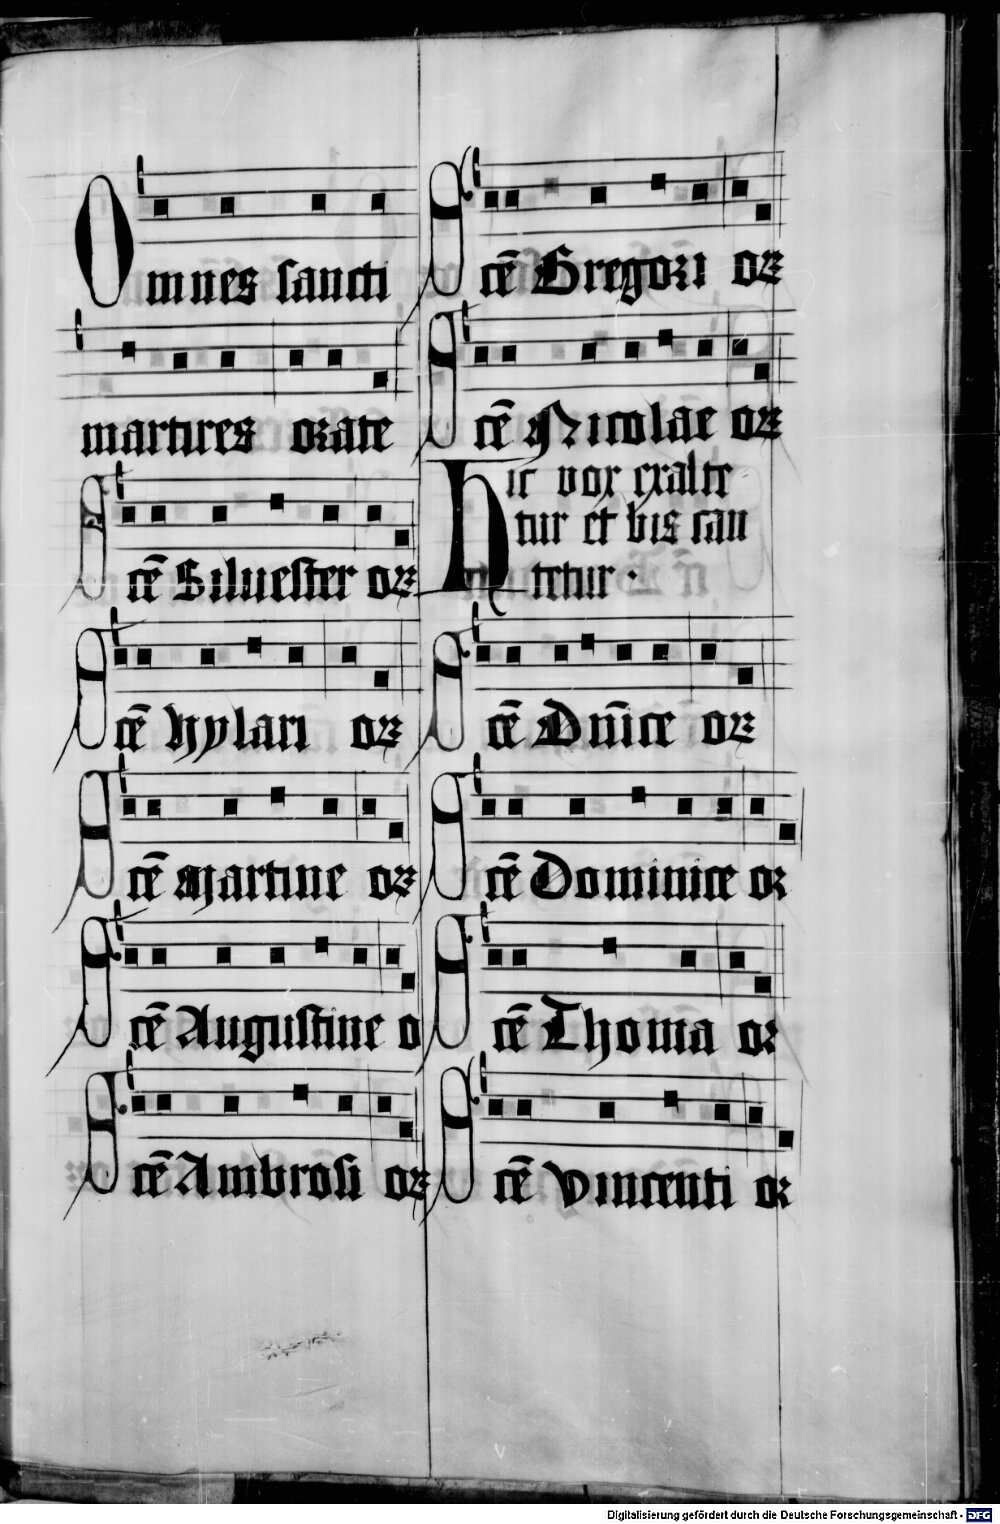 Omnes sancti
martires orate
Scē Siluester or
Scē hylari or
Scē Martine or
Scē Augustine o
Scē Ambrosi or
Scē Gregori or
Scē Nicolae or
Hic vox exalte
tur et bis can
tetur.
Scē Dñice or
Scē Dominice or
Scē Thoma or
Scē Vincenti or
Digitalisierung gefördert durch die Deutsche Forschungsgemeinschaft - DFG